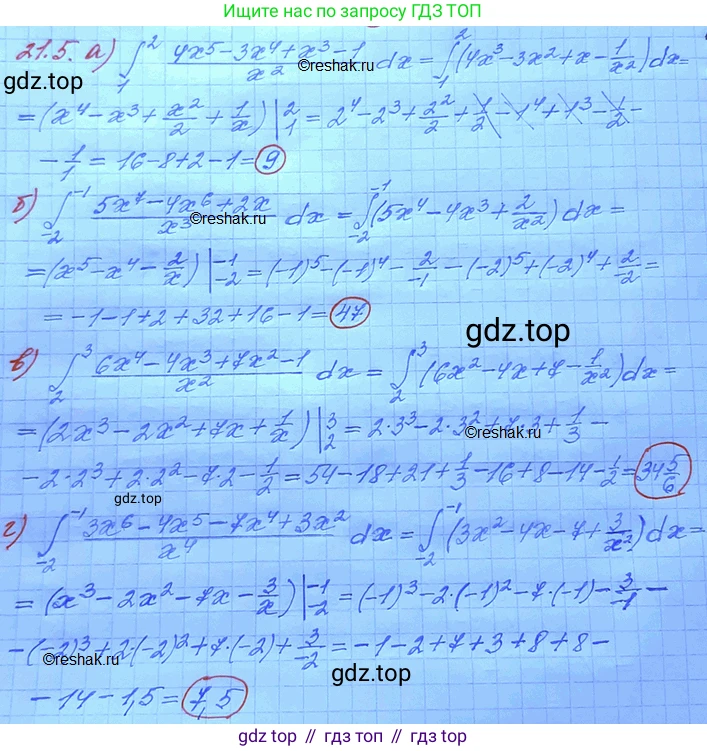 Ищите нас по запросу ГДЗ ТОП
21.5. а) ∫₁² (4x⁵ - 3x⁴ + x³ - 1)/x² dx = ∫₁² (4x³ - 3x² + x - 1/x²) dx =
gdz.top
@reshak.ru
= (x⁴ - x³ + x²/2 + 1/x) |₁² = 2⁴ - 2³ + 2²/2 + 1/2 - 1⁴ + 1³ - 1/2 -
- 1/1 = 16 - 8 + 2 - 1 = 9
б) ∫₋₂⁻¹ (5x⁷ - 4x⁶ + 2x)/x³ dx = ∫₋₂⁻¹ (5x⁴ - 4x³ + 2/x²) dx =
@reshak.ru
= (x⁵ - x⁴ - 2/x) |₋₂⁻¹ = (-1)⁵ - (-1)⁴ - 2/-1 - (-2)⁵ + (-2)⁴ + 2/-2 =
= -1 - 1 + 2 + 32 + 16 - 1 = 47
gdz.top
в) ∫₂³ (6x⁴ - 4x³ + 7x² - 1)/x² dx = ∫₂³ (6x² - 4x + 7 - 1/x²) dx =
= (2x³ - 2x² + 7x + 1/x) |₂³ = 2·3³ - 2·3² + 7·3 + 1/3 -
@reshak.ru
- 2·2³ + 2·2² - 7·2 - 1/2 = 54 - 18 + 21 + 1/3 - 16 + 8 - 14 - 1/2 = 34 5/6
gdz.top
г) ∫₋₂⁻¹ (3x⁶ - 4x⁵ - 7x⁴ + 3x²)/x⁴ dx = ∫₋₂⁻¹ (3x² - 4x - 7 + 3/x²) dx =
= (x³ - 2x² - 7x - 3/x) |₋₂⁻¹ = (-1)³ - 2·(-1)² - 7·(-1) - 3/-1 -
- (-2)³ + 2·(-2)² + 7·(-2) + 3/-2 = -1 - 2 + 7 + 3 + 8 + 8 -
@reshak.ru
gdz.top
- 14 - 1,5 = 7,5
gdz.top // гдз.топ // gdz.top // гдз.топ // gdz.top